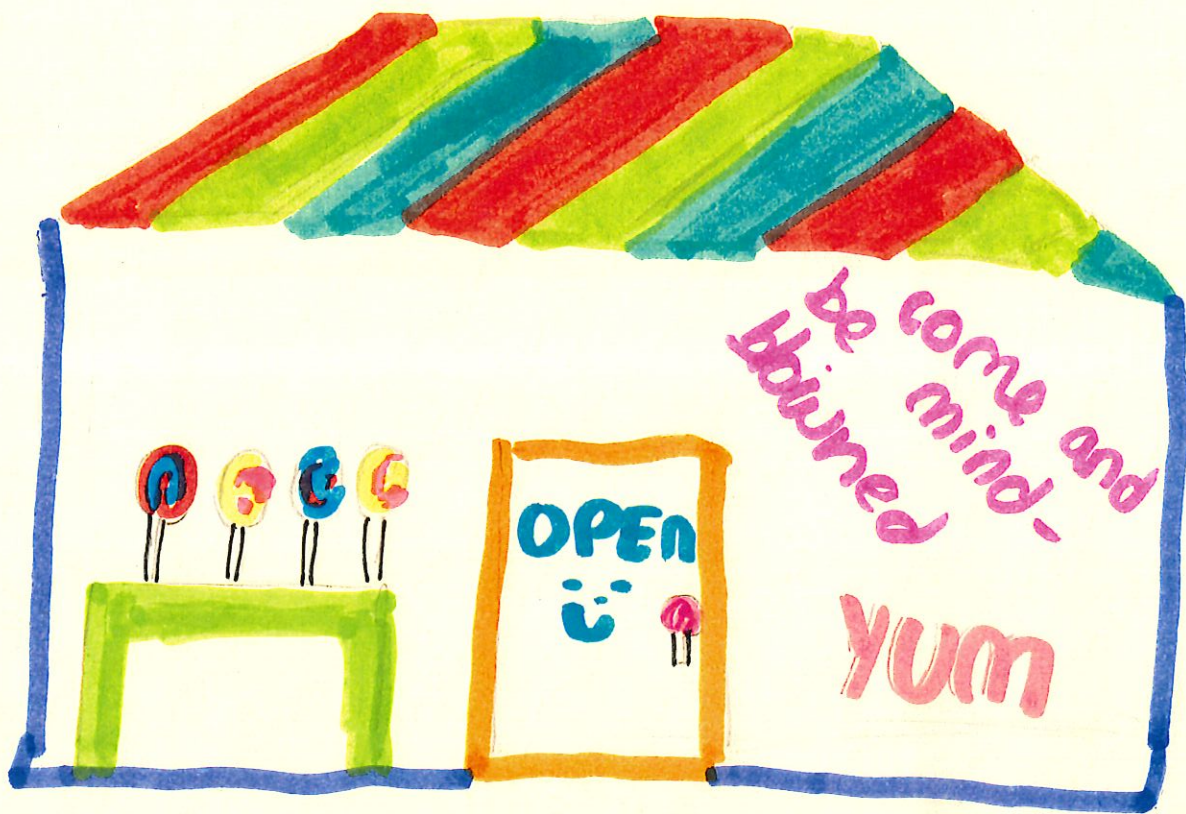 OPEn
come and
be mind-
blowned
YUM